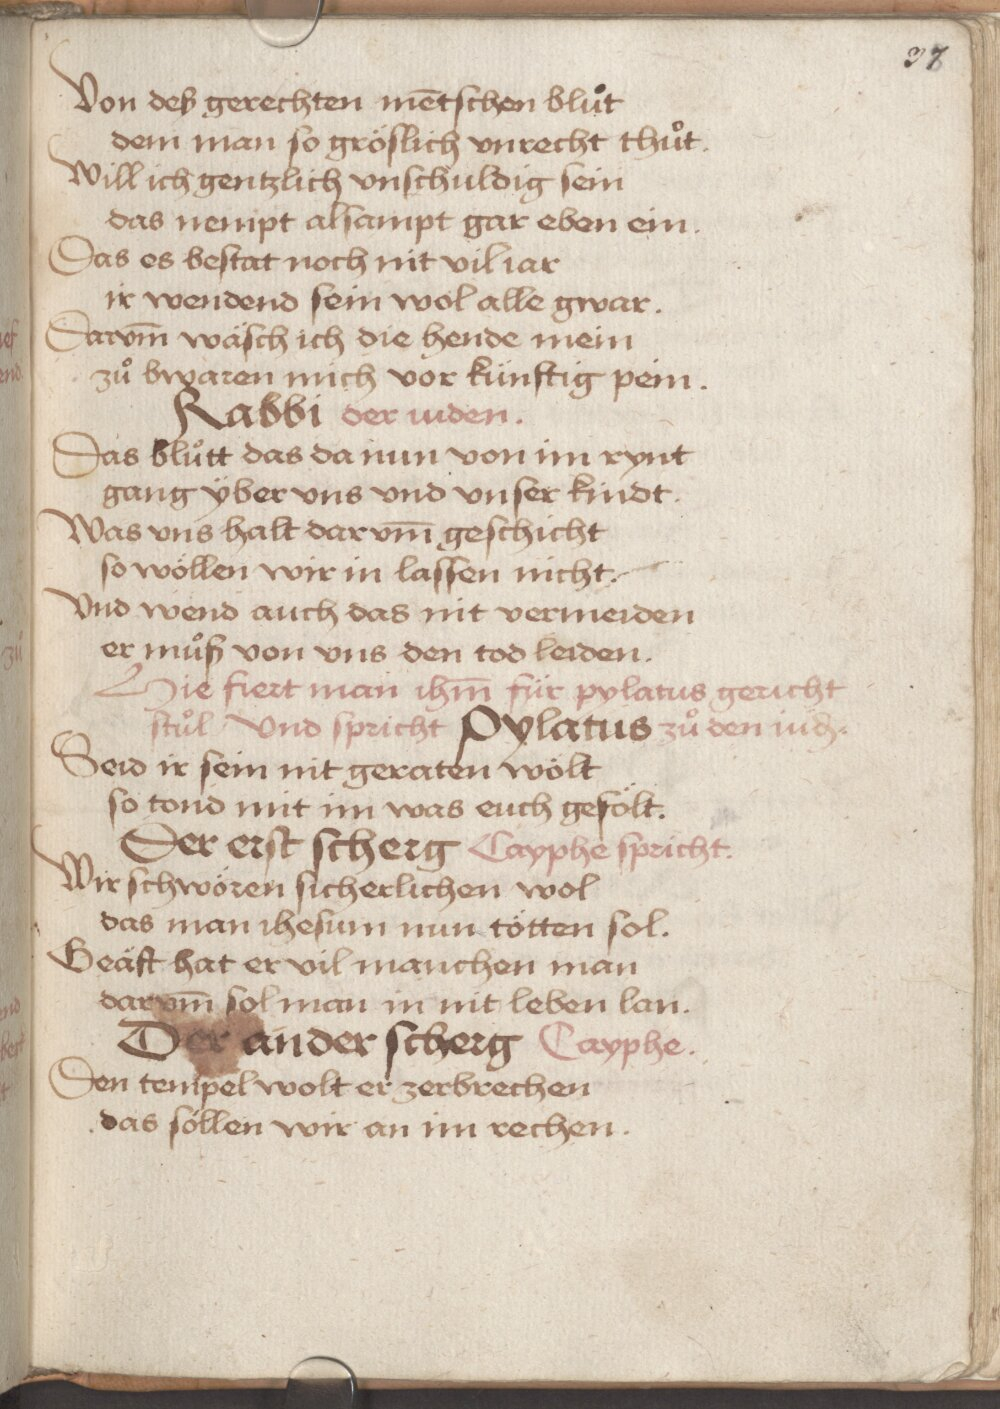 37
Von deß gerechten mētschen blůt
dem man so gröslich vnrecht thůt.
Will ich gentzlich vnschuldig sein
das nempt alsampt gar eben ein.
Das es bestat noch nit vil iar
ir wendend sein wol alle gwar.
Darvm̄ wäsch ich die hende mein
zů bwaren mich vor künftig pein.
Rabbi der iuden.
Das blůtt das da nun von im rynt
gang ÿber vns vnd vnser kindt.
Was vns halt darvm̄ geschicht
so wöllen wir in lassen nicht.
Vnd wend auch das nit vermeiden
er můß von vns den tod leiden.
Hie fiert man ihm̄ für pylatus gericht
stůl Vnd spricht Pylatus zů den iudē.
Seid ir sein nit geraten wölt
so tond mit im was euch gefölt.
Der erst scherg Cayphe spricht.
Wir schwören sicherlichen wol
das man ihesum nun tötten sol.
Geäft hat er vil manchen man
darvm̄ sol man in nit leben lan.
Der ander scherg Cayphe.
Den tempel wolt er zerbrechen
das söllen wir an im rechen.